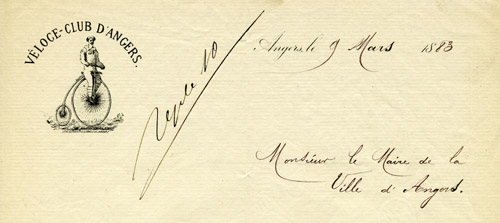 VÉLOCE-CLUB D'ANGERS.
Angers, le 9 Mars 1883
Monsieur le Maire de la
Ville d'Angers.